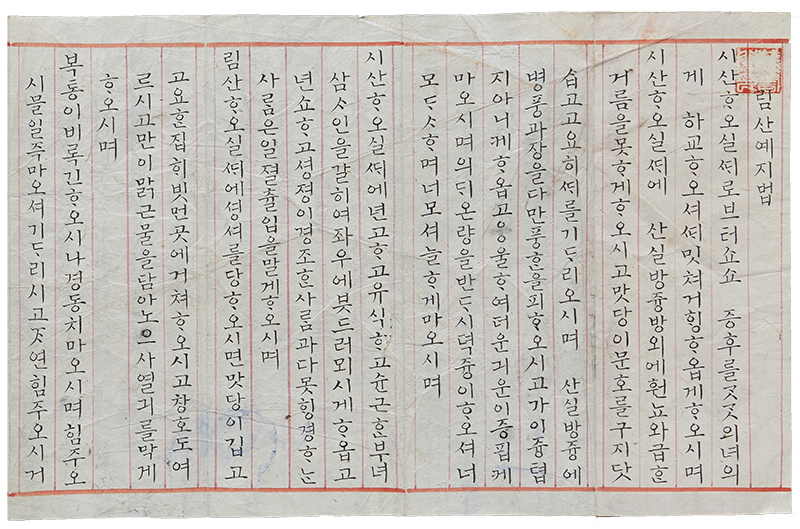 림산예지법
시산ᄒᆞ오실ᄯᆡ로브터쇼쇼 증후를ᄌᆞᄌᆞ의녀의
게 하교ᄒᆞ오셔ᄯᆡ밋쳐거ᄒᆡᆼᄒᆞ옵게ᄒᆞ오시며
시산ᄒᆞ오실ᄯᆡ에 산실방듕방외에훤뇨와급ᄒᆞᆫ
거름을못ᄒᆞ게ᄒᆞ오시고맛당이문호를구지닷
습고고요히ᄯᆡ를기ᄃᆞ리오시며 산실방듕에
병풍과장을다만풍한을피ᄒᆞ오시고가이듕텹
지아니케ᄒᆞ옵고응울ᄒᆞ여더운긔운이증핍게
마오시며의ᄃᆡ온량을반ᄃᆞ시덕듕이ᄒᆞ오셔너
모ᄃᆞᄉᆞᄒᆞ며너모셔늘ᄒᆞ게마오시며
시산ᄒᆞ오실ᄯᆡ에년고ᄒᆞ고유식ᄒᆞ고슌근ᄒᆞᆫ부녀
삼ᄉᆞ인을ᄀᆞᆯᄒᆡ여좌우에븟드러뫼시게ᄒᆞ옵고
년쇼ᄒᆞ고셩졍이경조ᄒᆞᆫ사ᄅᆞᆷ과다못ᄒᆡᆼ경ᄒᆞᄂᆞᆫ
사ᄅᆞᆷ은일졀츌입을말게ᄒᆞ오시며
림산ᄒᆞ오실ᄯᆡ에셩셔를당ᄒᆞ오시면맛당이깁고
고요ᄒᆞᆫ집ᄒᆡ빗먼곳에거쳐ᄒᆞ오시고창호도여
르시고만이맑근물을담아노으사열긔를막게
ᄒᆞ오시며
복통이비록긴ᄒᆞ오시나경동치마오시며힘주오
시믈일주마오셔기ᄃᆞ리시고ᄌᆞ연힘주오시거